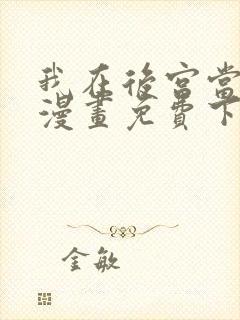 我在後宮當
漫畫免費下
金敏